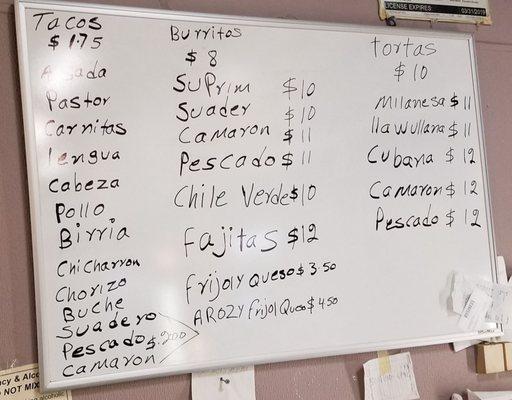 Tacos
$1.75
Asada
Pastor
Carnitas
lengua
Cabeza
Pollo
Birria
Chicharron
Chorizo
Buche
Suadero
Pescado $2.00
Camaron
Burritos
$8
SuPrim $10
Suader $10
Camaron $11
Pescado $11
Chile Verde $10
fajitas $12
frijoly Queso $3.50
AROZY frijol Queso $4.50
tortas
$10
Milanesa $11
Hawullana $11
Cubana $12
Camaron $12
Pescado $12
LICENSE EXPIRES 03/31/2019